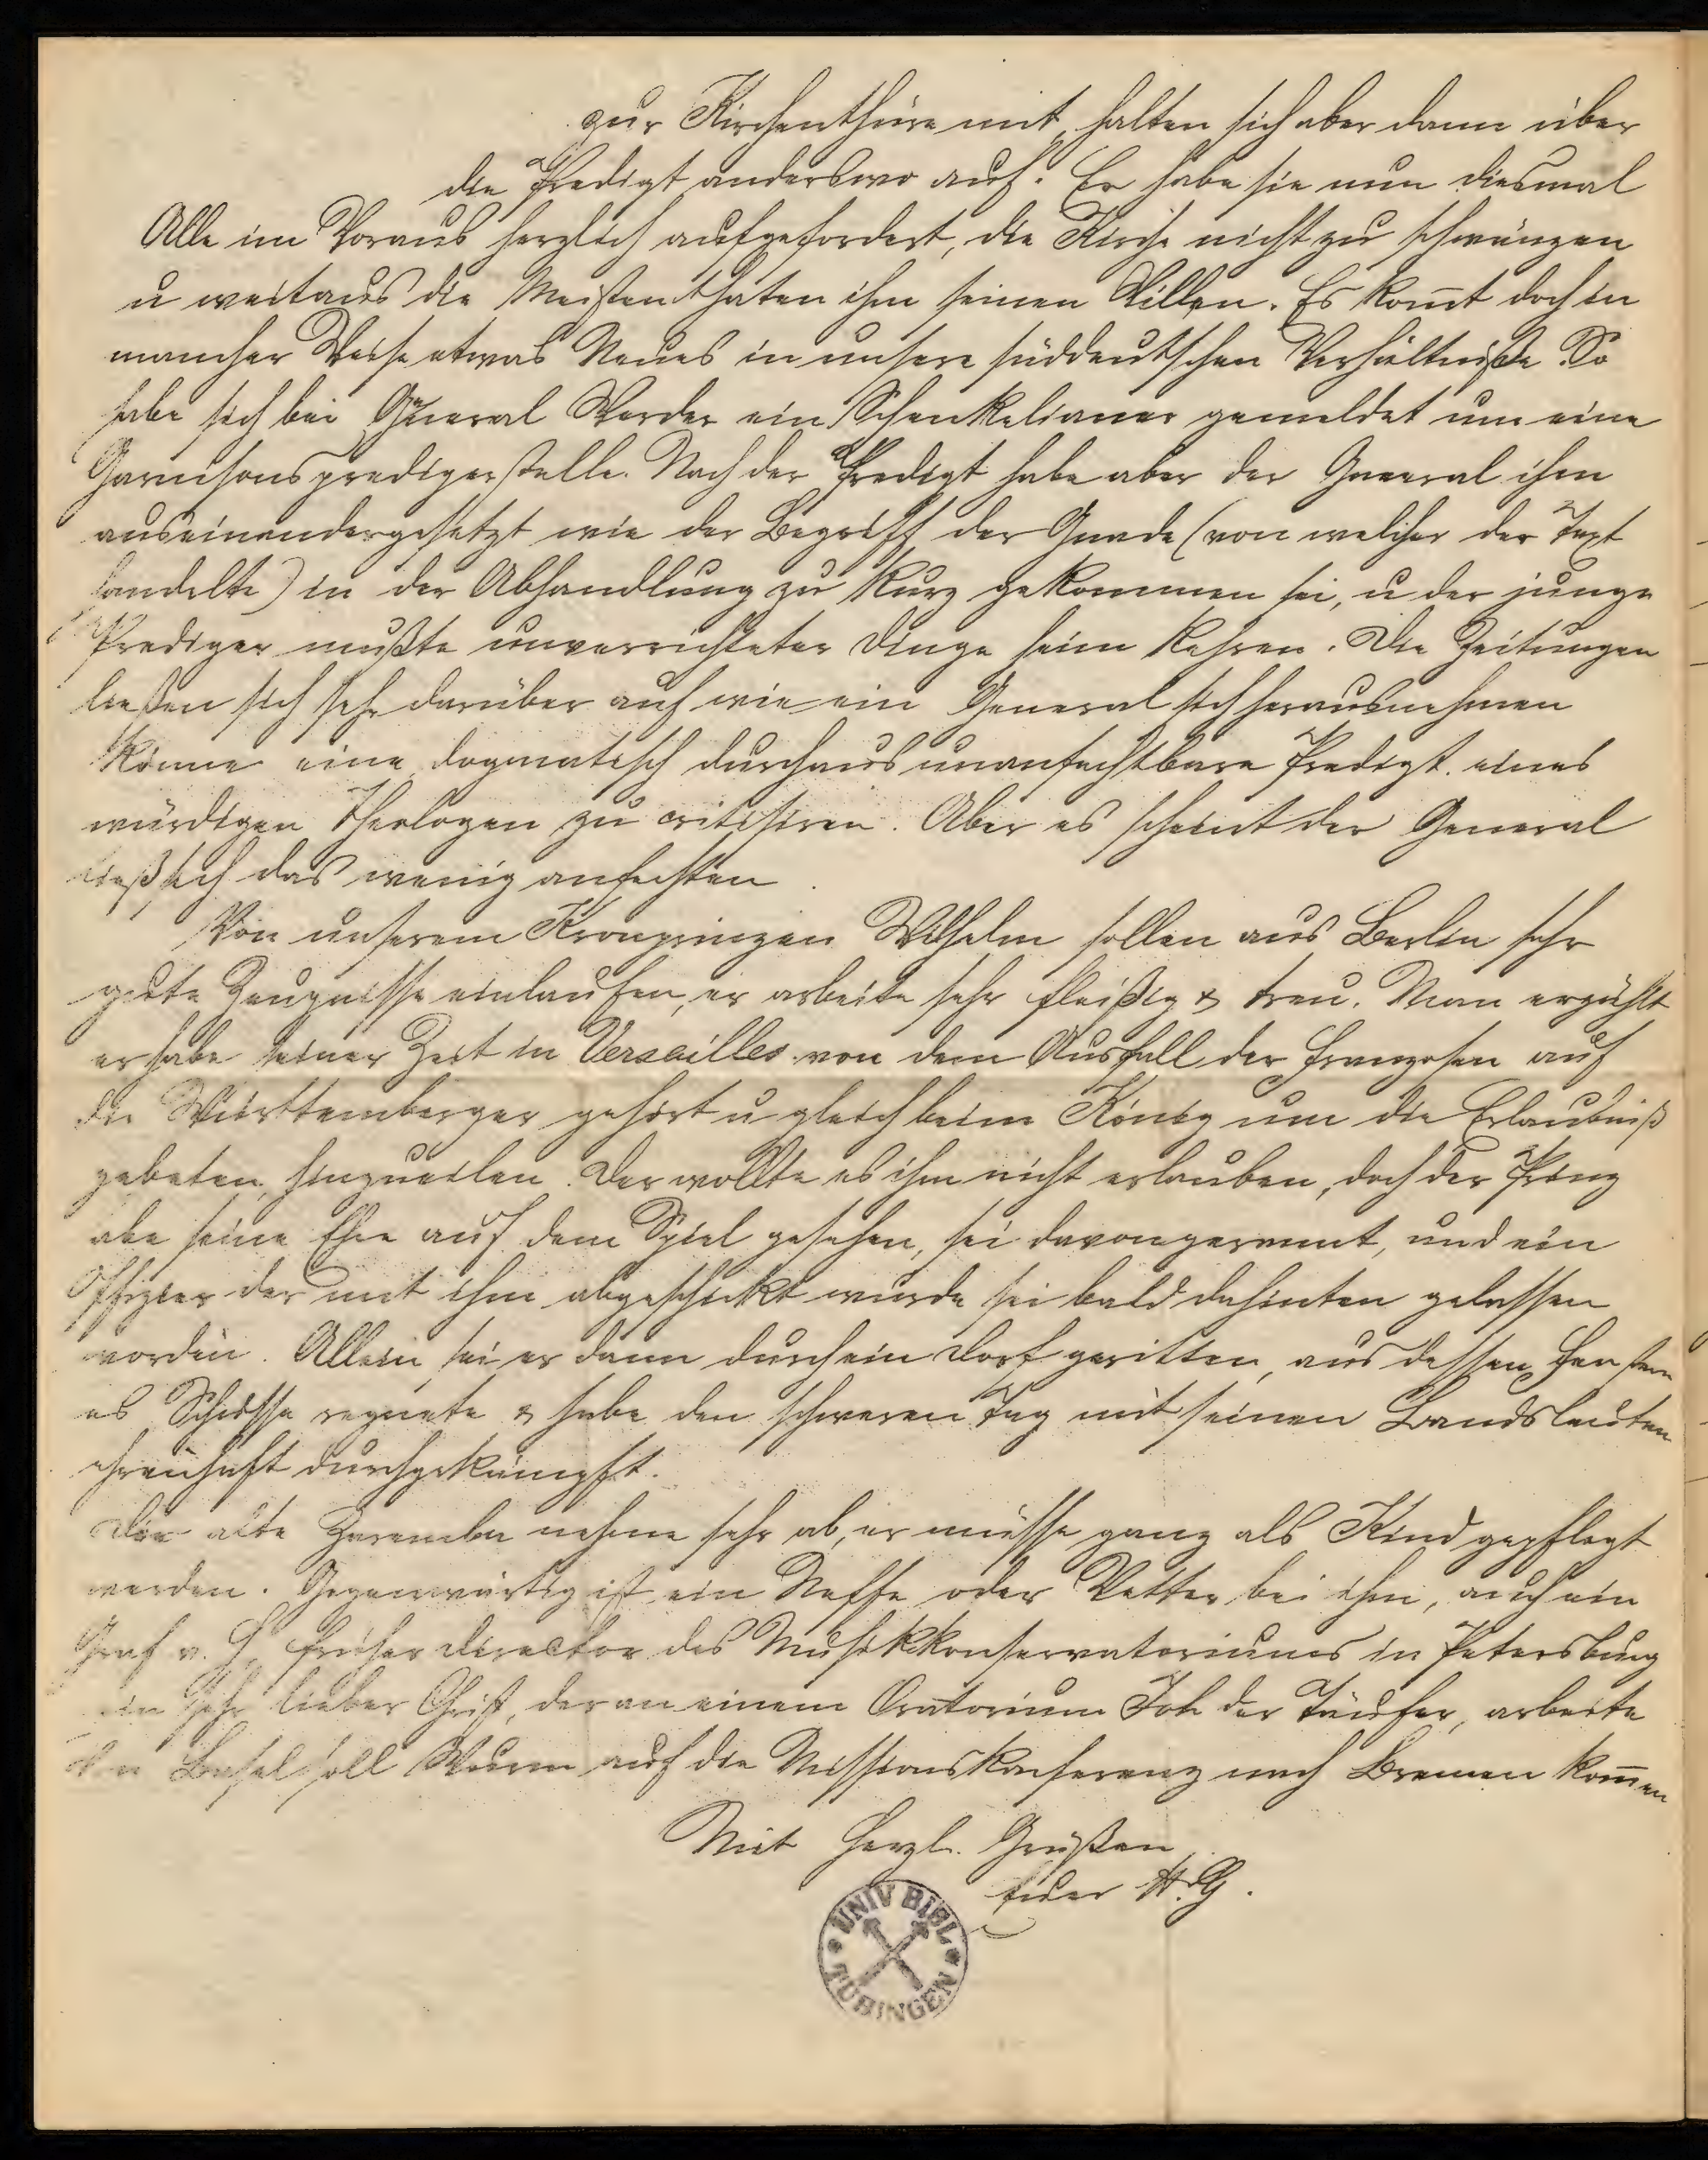 zur Kirchenthüre mit, halten sich aber dann über
die Predigt anderswo auf. Er habe sie nun diesmal
Alle im Voraus herzlich aufgefordert, die Kirche nicht zu schwänzen
u weitaus die Meisten thaten ihm seinen Willen. Es kom̅t doch in
mancher Weise etwas Neues in unsere süddeutschen Verhältniße. So
habe sich bei General Werder ein Schenkelianer gemeldet um eine
Garnisonspredigerstelle. Nach der Predigt habe aber der General ihm
auseinandergesetzt wie der Begriff der Gnade (von welcher der Text
handelte) in der Abhandlung zu kurz gekommen sei, u der junge
Prediger mußte unverrichteter Dinge heim kehren. Die Zeitungen
ließen sich sehr darüber auf wie ein General sich herausnehmen
könne eine dogmatisch durchaus unanfechtbare Predigt eines
würdigen Theologen zu critisiren. Aber es scheint der General
ließ sich das wenig anfechten.
Von unserem Kronprinzen Wilhelm sollen aus Berlin sehr
gute Zeugnisse einlaufen, er arbeite sehr fleißig & treu. Man erzählt
er habe seiner Zeit in Versailles von dem Ausfall der Franzosen auf
die Württemberger gehört u gleich beim König um die Erlaubniß
gebeten, hinzueilen. Der wollte es ihm nicht erlauben, doch der Prinz
habe seine Ehre auf dem Spiel gesehen, sei davongerannt, und ein
Offizier der mit ihm abgeschickt wurde sei bald dahinten gelassen
worden. Allein sei er dann durch ein Dorf geritten, aus dessen Fenstern
es Schüsse regnete & habe den schweren Tag mit seinen Landsleuten
ehrenhaft durchgekämpft.
Der alte Zaremba nehme sehr ab, er müsse ganz als Kind gepflegt
werden. Gegenwärtig ist ein Neffe oder Vetter bei ihm, auch ein
Graf v. Z, früher Director des Musikkonservatoriums in Petersburg
ein sehr lieber Christ, der an einem Oratorium Joh der Täufer, arbeite
Von Basel soll Wurm auf die Missionskonferenz nach Bremen kom̅en
Mit herzl. Grüßen
Euer H. G.
UNIV BIBL
TÜBINGEN